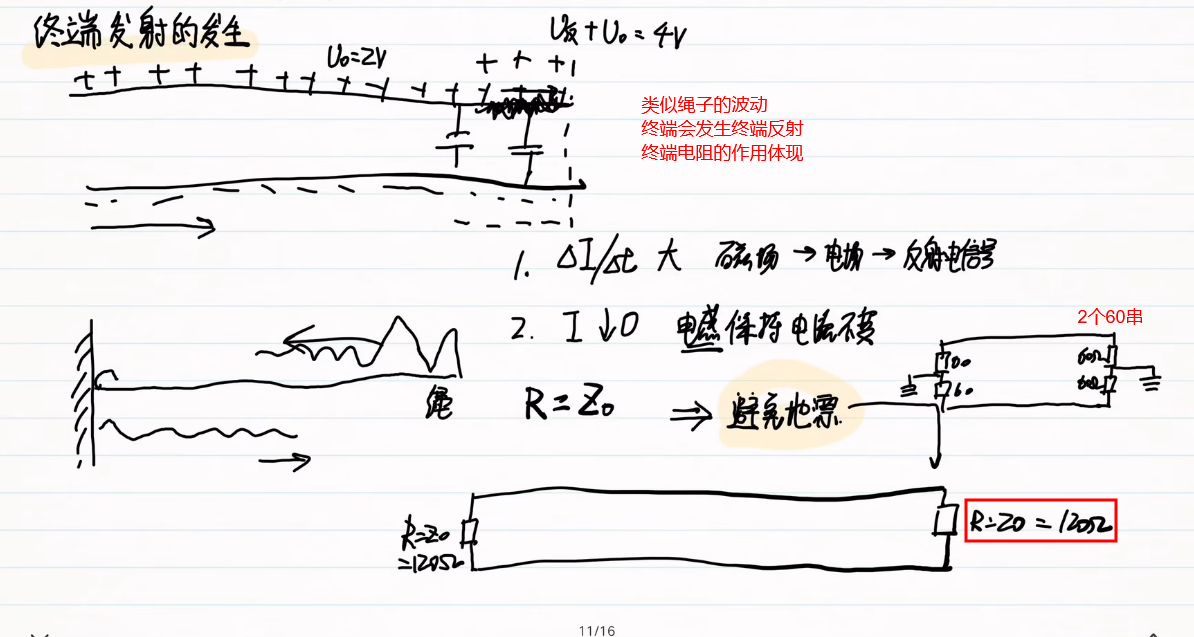 终端发射的发生
U反+U₀=4V
U₀=2V
类似绳子的波动
终端会发生终端反射
终端电阻的作用体现
1. ΔI/Δt 大 磁场→电场→反射电信号
2. I↓0 电感保持电流不变
2个60串
60
60
60Ω
60Ω
绳
R=Z₀ ⇒ 避免地票
R=Z0
=120Ω
R=Z0=120Ω
11/16